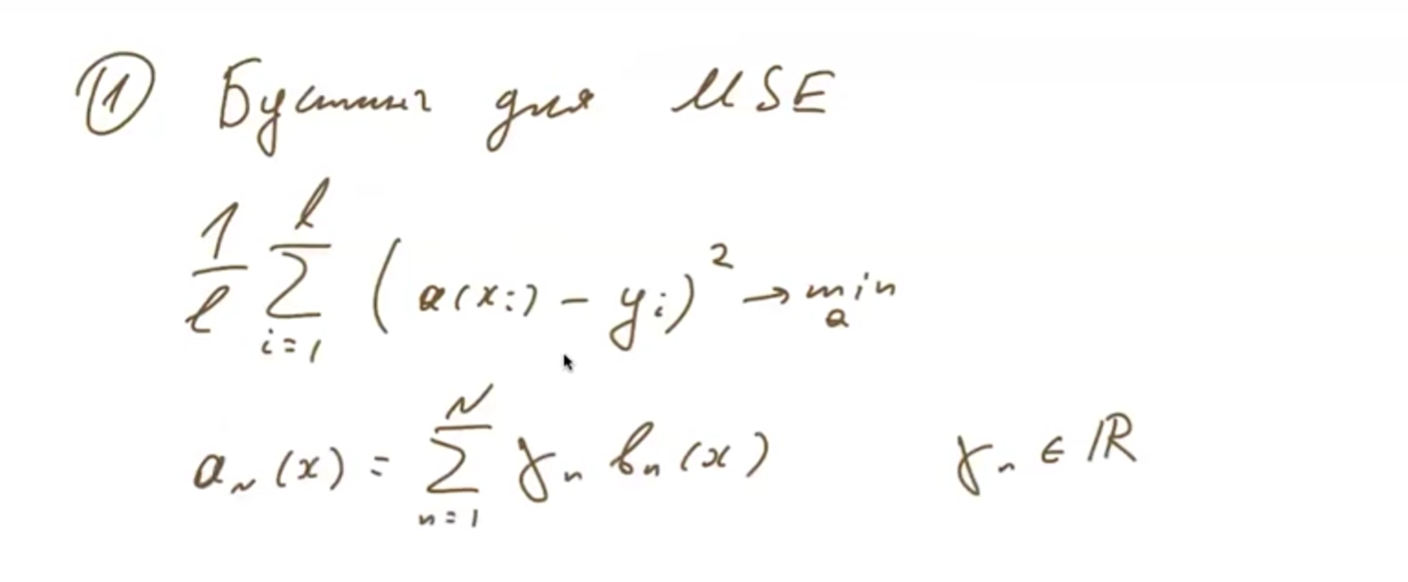 ① Бустинг для MSE
1/ℓ ∑_{i=1}^{ℓ} (a(x_i) − y_i)² → min_a
a_N(x) = ∑_{n=1}^{N} γ_n b_n(x)     γ_n ∈ ℝ